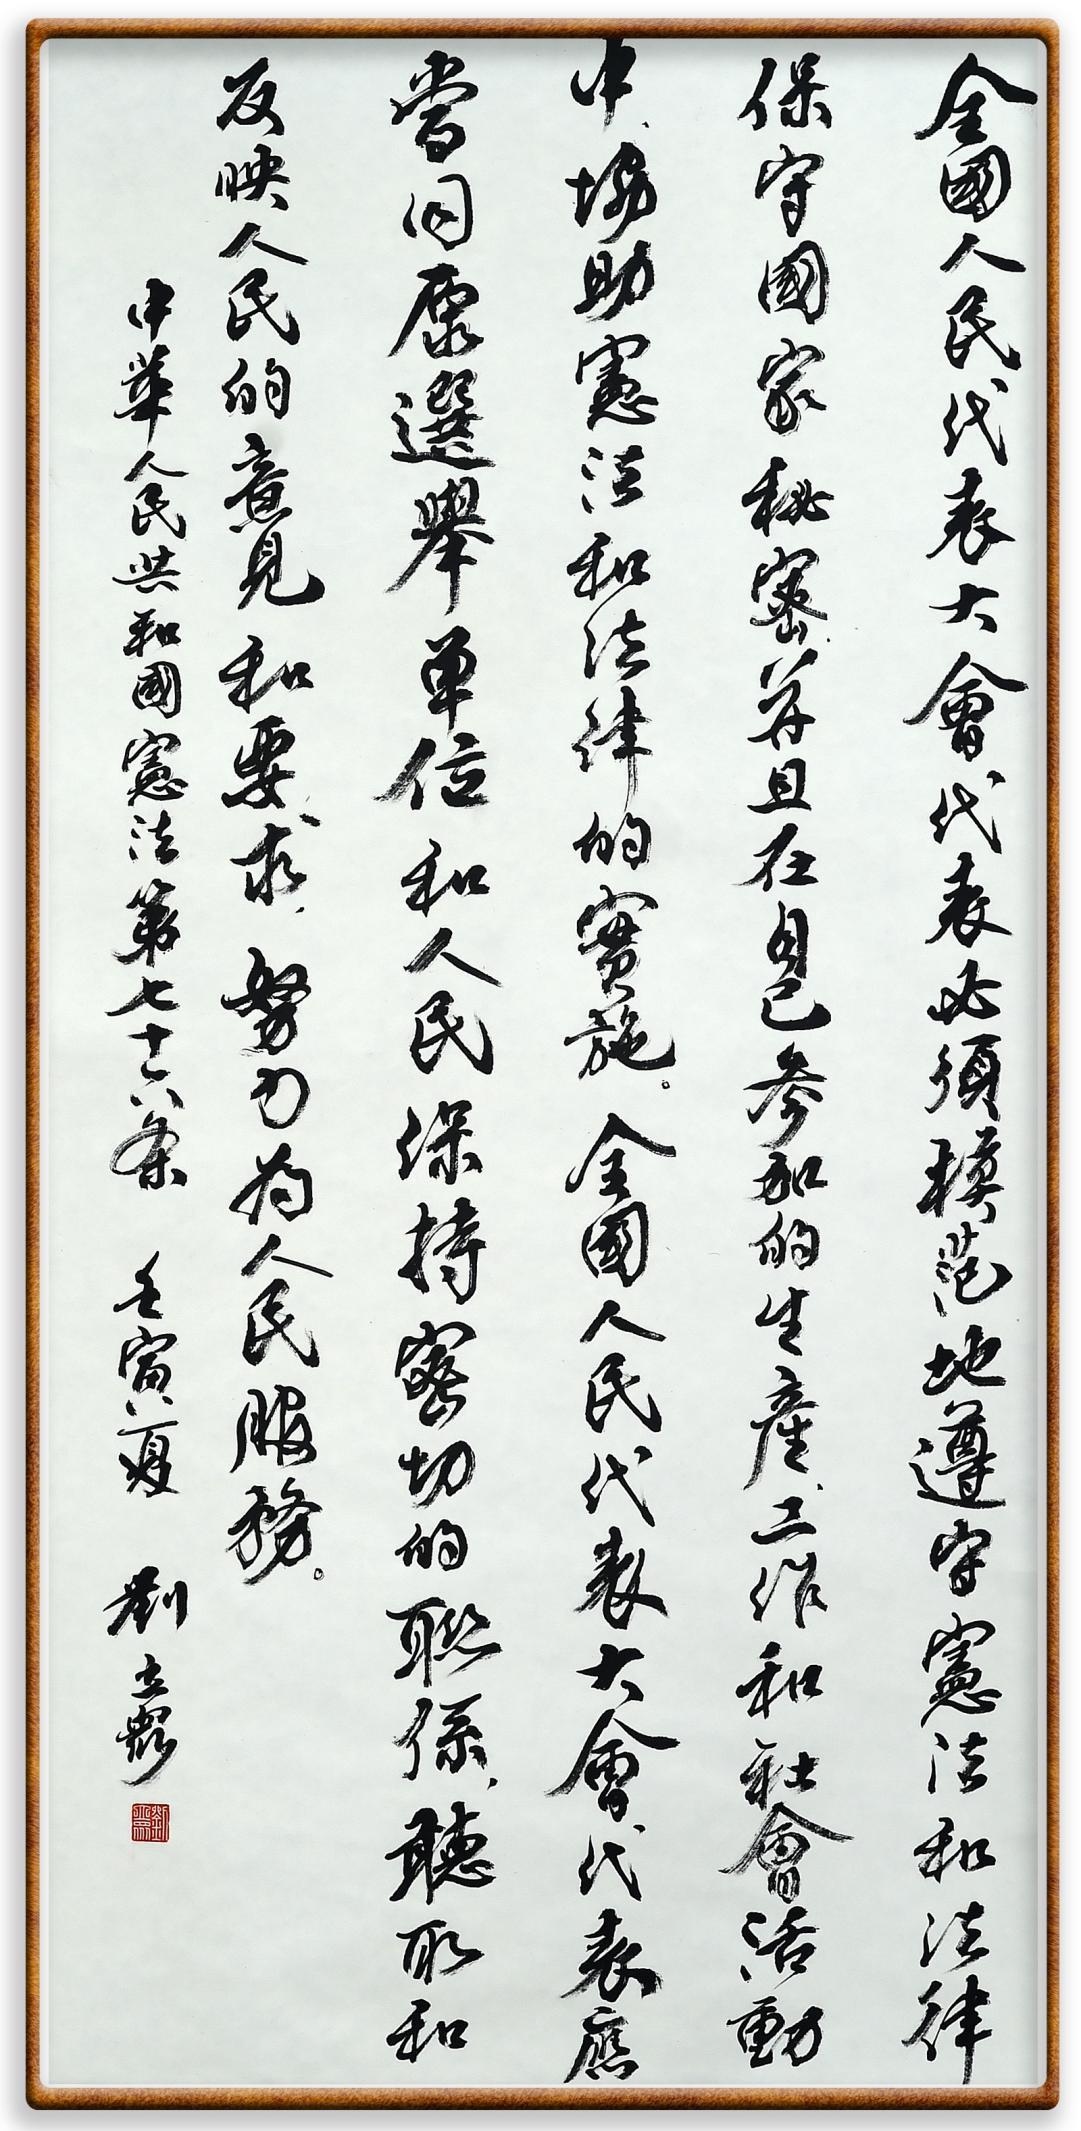 全國人民代表大會代表必須模范地遵守憲法和法律
保守國家秘密并且在自己参加的生產、工作和社會活動
中、協助憲法和法律的實施。全國人民代表大會代表應
當同原選舉單位和人民保持密切的聯係、聽取和
反映人民的意見和要求、努力为人民服務。
中華人民共和國憲法第七十六条 壬寅夏 劉立